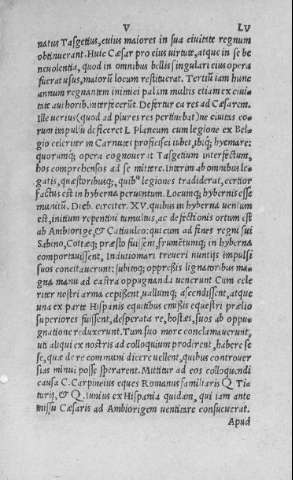 V LV
natus Tasgetius, cuius maiores in sua ciuitate regnum
obtinuerant. Huic Cæsar pro eius virtute, atque in se be
neuolentia, quod in omnibus bellis singulari eius opera
fuerat usus, maiorũ locum restituerat. Tertiũ iam hunc
annum regnantem inimici palam multis etiam ex ciui
tate authorib. interfecerũt. Defertur ea res ad Cæsarem.
Ille ueritus (quod ad plures res pertinebat) ne ciuitas eo
rum impulsu deficeret L. Plancum cum legione ex Bel
gio celeriter in Carnutes proficisci iubet, ibiq; hyemare:
quorumq; opera cognouerat Tasgetium interfectum,
hos comprehensos ad se mittere. Interim ab omnibus le
gatis, quæstoribusq;, quib⁹ legiones tradiderat, certior
factus est in hyberna peruentum. Locumq; hybernis esse
munitũ. Dieb. circiter. XV. quibus in hyberna uentum
est, initium repentini tumultus, ac defectionis ortum est
ab Ambiorige, & Catiuulco: qui cum ad fines regni sui
Sabino, Cottæq; præsto fuissent, frumẽtumq; in hyberna
comportauissent, Indutiomari treueri nuntijs impulsi
suos concitauerunt: subitoq; oppressis lignatoribus ma-
gna manu ad castra oppugnandi uenerunt Cum cele
riter nostri arma cepissent uallumq; ascendissent, atque
una ex parte Hispanis equitibus emissis equestri prælio
superiores fuissent, desperata re, hostes, suos ab oppu-
gnatione reduxerunt. Tum suo more conclamauerunt,
uti aliqui ex nostris ad colloquium prodirent, habere se
se, quæ de re communi dicere uellent, quibus controuer
sias minui posse sperarent. Mittitur ad eos colloquendi
causa C. Carpineius eques Romanus familiaris Q. Tia
turij, & Q. iunius ex Hispania quidam, qui iam ante
missu Cæsaris ad Ambiorigem uentitare consueuerat.
Apud